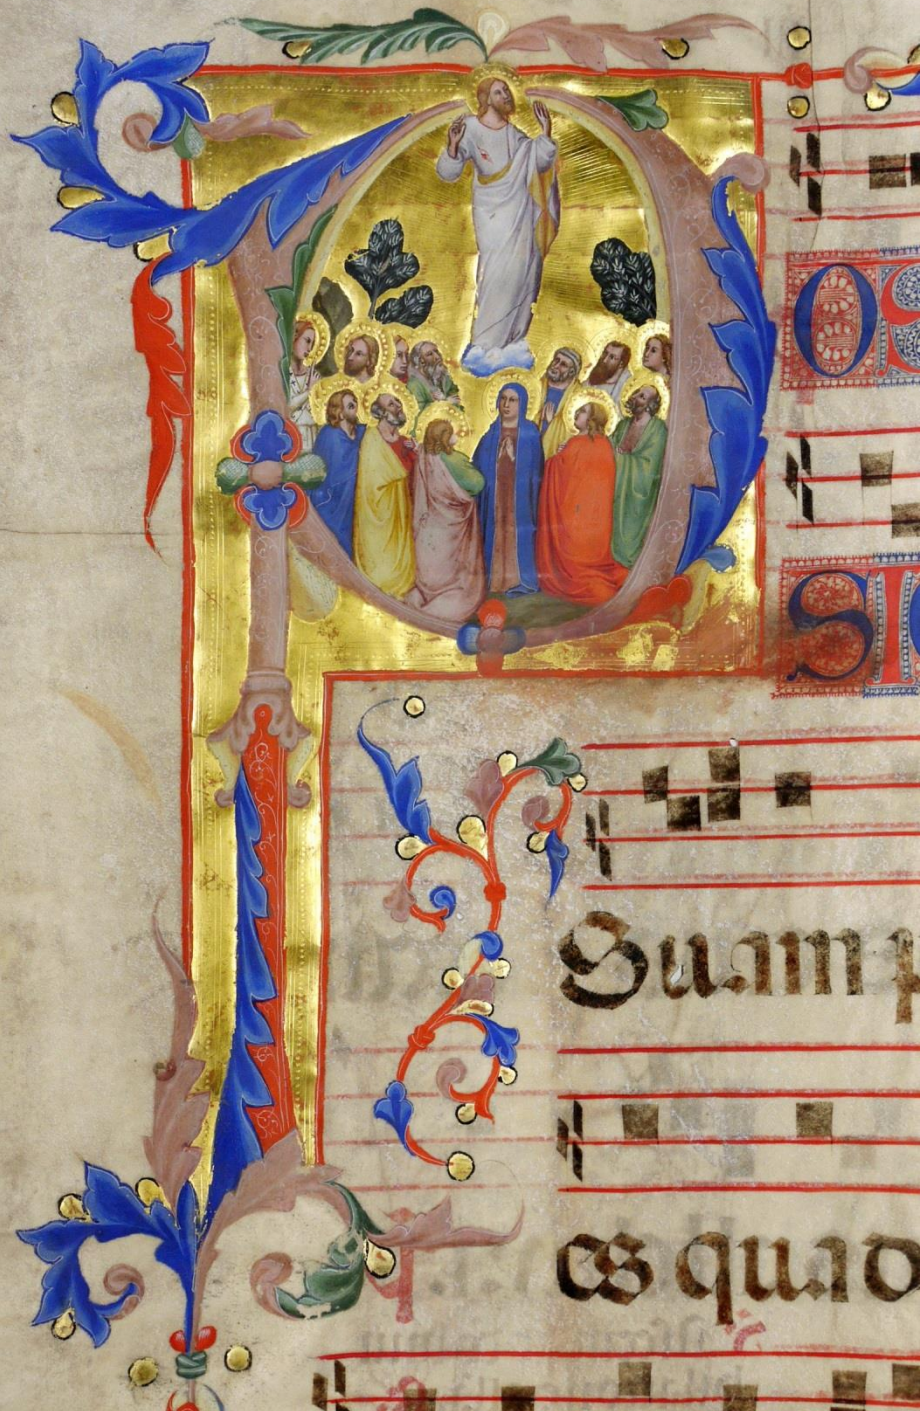 P
OS
SI
Suam p
es quad